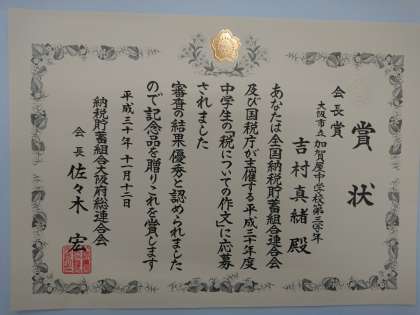 賞状
会長賞
大阪市立加賀屋中学校第三学年
吉村真緒殿
あなたは全国納税貯蓄組合連合会
及び国税庁が主催する平成三十年度
中学生の「税についての作文」に応募
されました
審査の結果優秀と認められました
ので記念品を贈りこれを賞します
平成三十年十一月十三日
納税貯蓄組合大阪府総連合会
会長佐々木宏